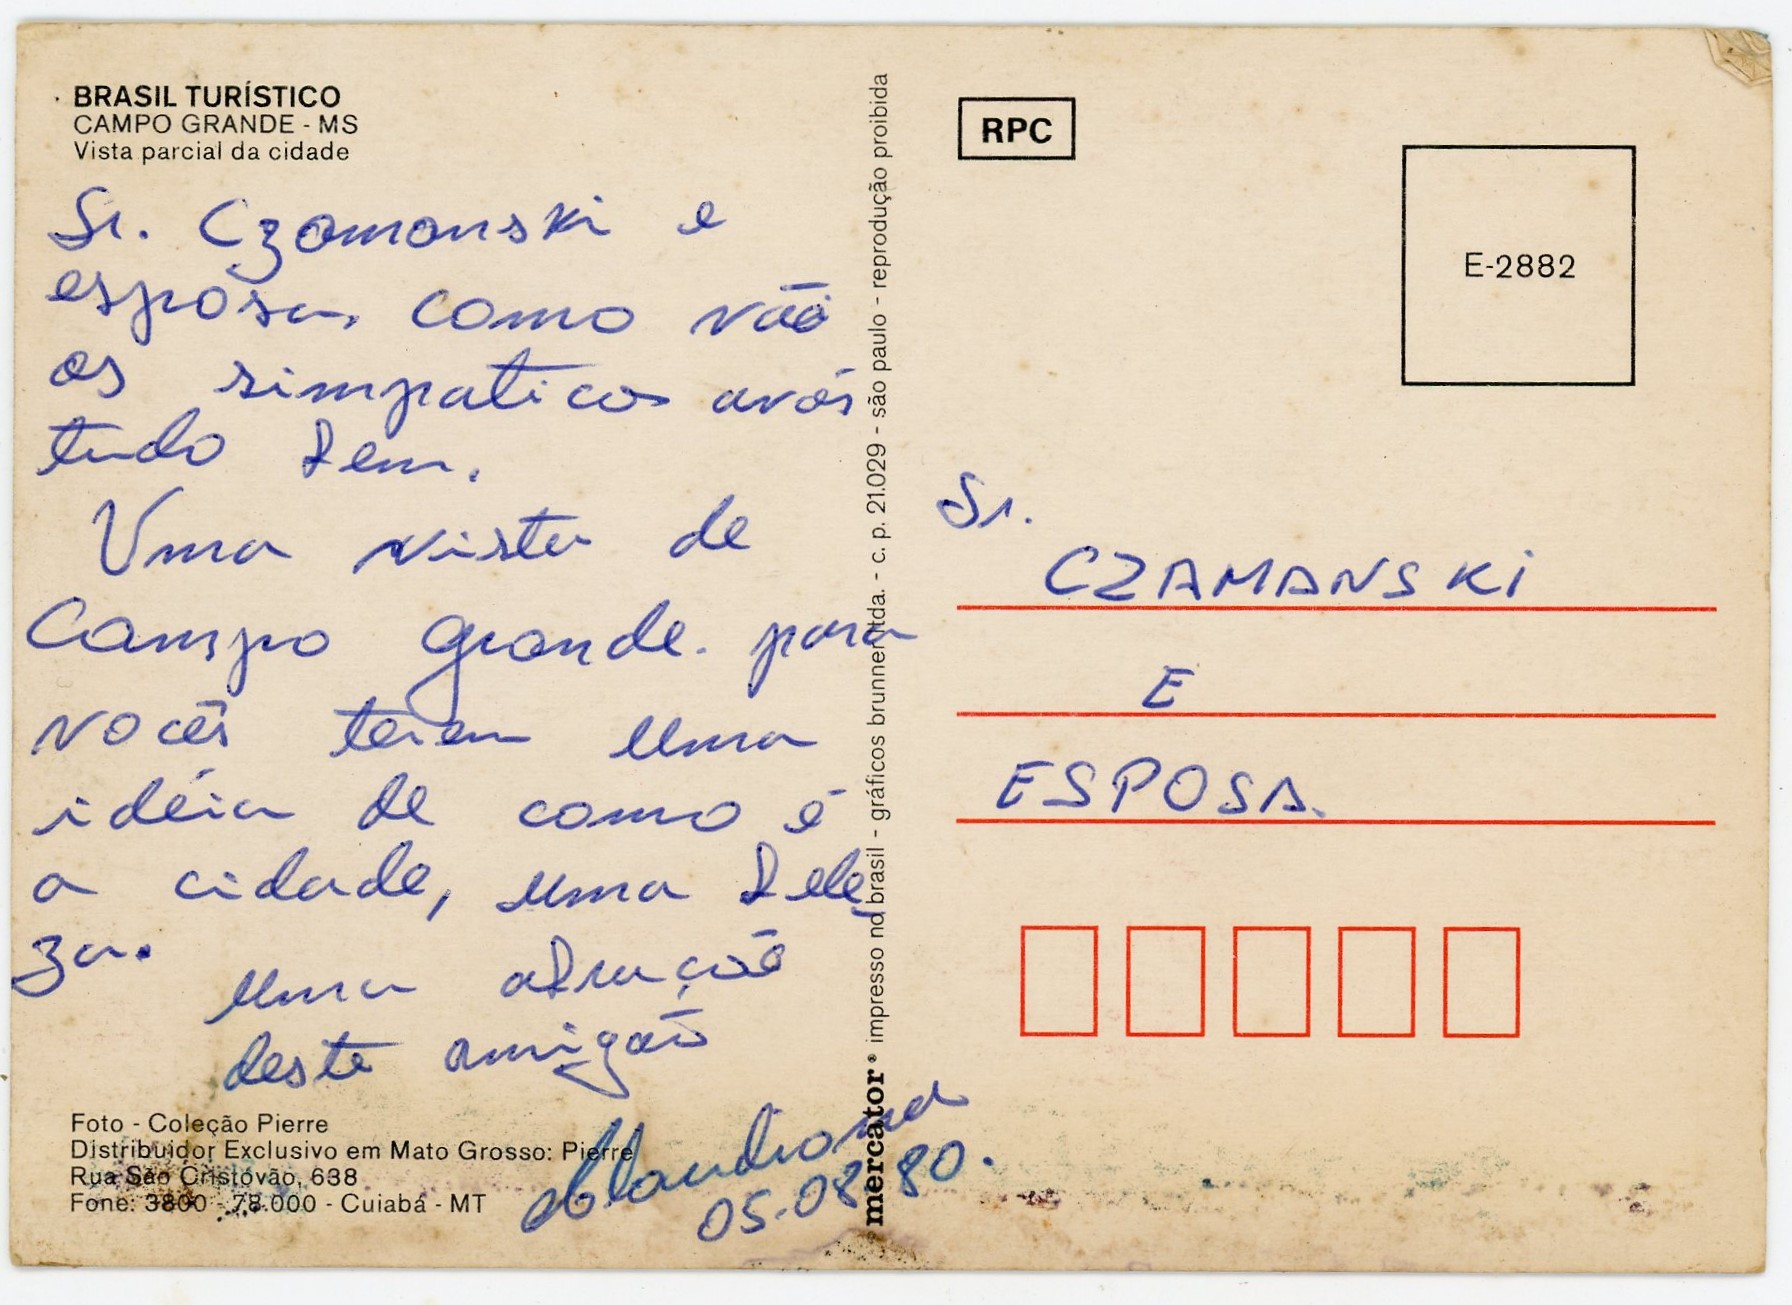 BRASIL TURÍSTICO
CAMPO GRANDE - MS
Vista parcial da cidade
Sr. Czamanski e
esposa, como vão
os simpaticos avós
tudo bem.
Uma vista de
Campo grande. para
vocês terem uma
idéia de como é
a cidade, uma bele
za.
uma abração
deste amigão
05.08.80.
Foto - Coleção Pierre
Distribuidor Exclusivo em Mato Grosso: Pierre
Rua São Cristóvão, 638
Fone: 3800 - 78.000 - Cuiabá - MT
mercator® impresso no brasil - gráficos brunner ltda. - c. p. 21.029 - são paulo - reprodução proibida
RPC
E-2882
Sr.
CZAMANSKI
E
ESPOSA.